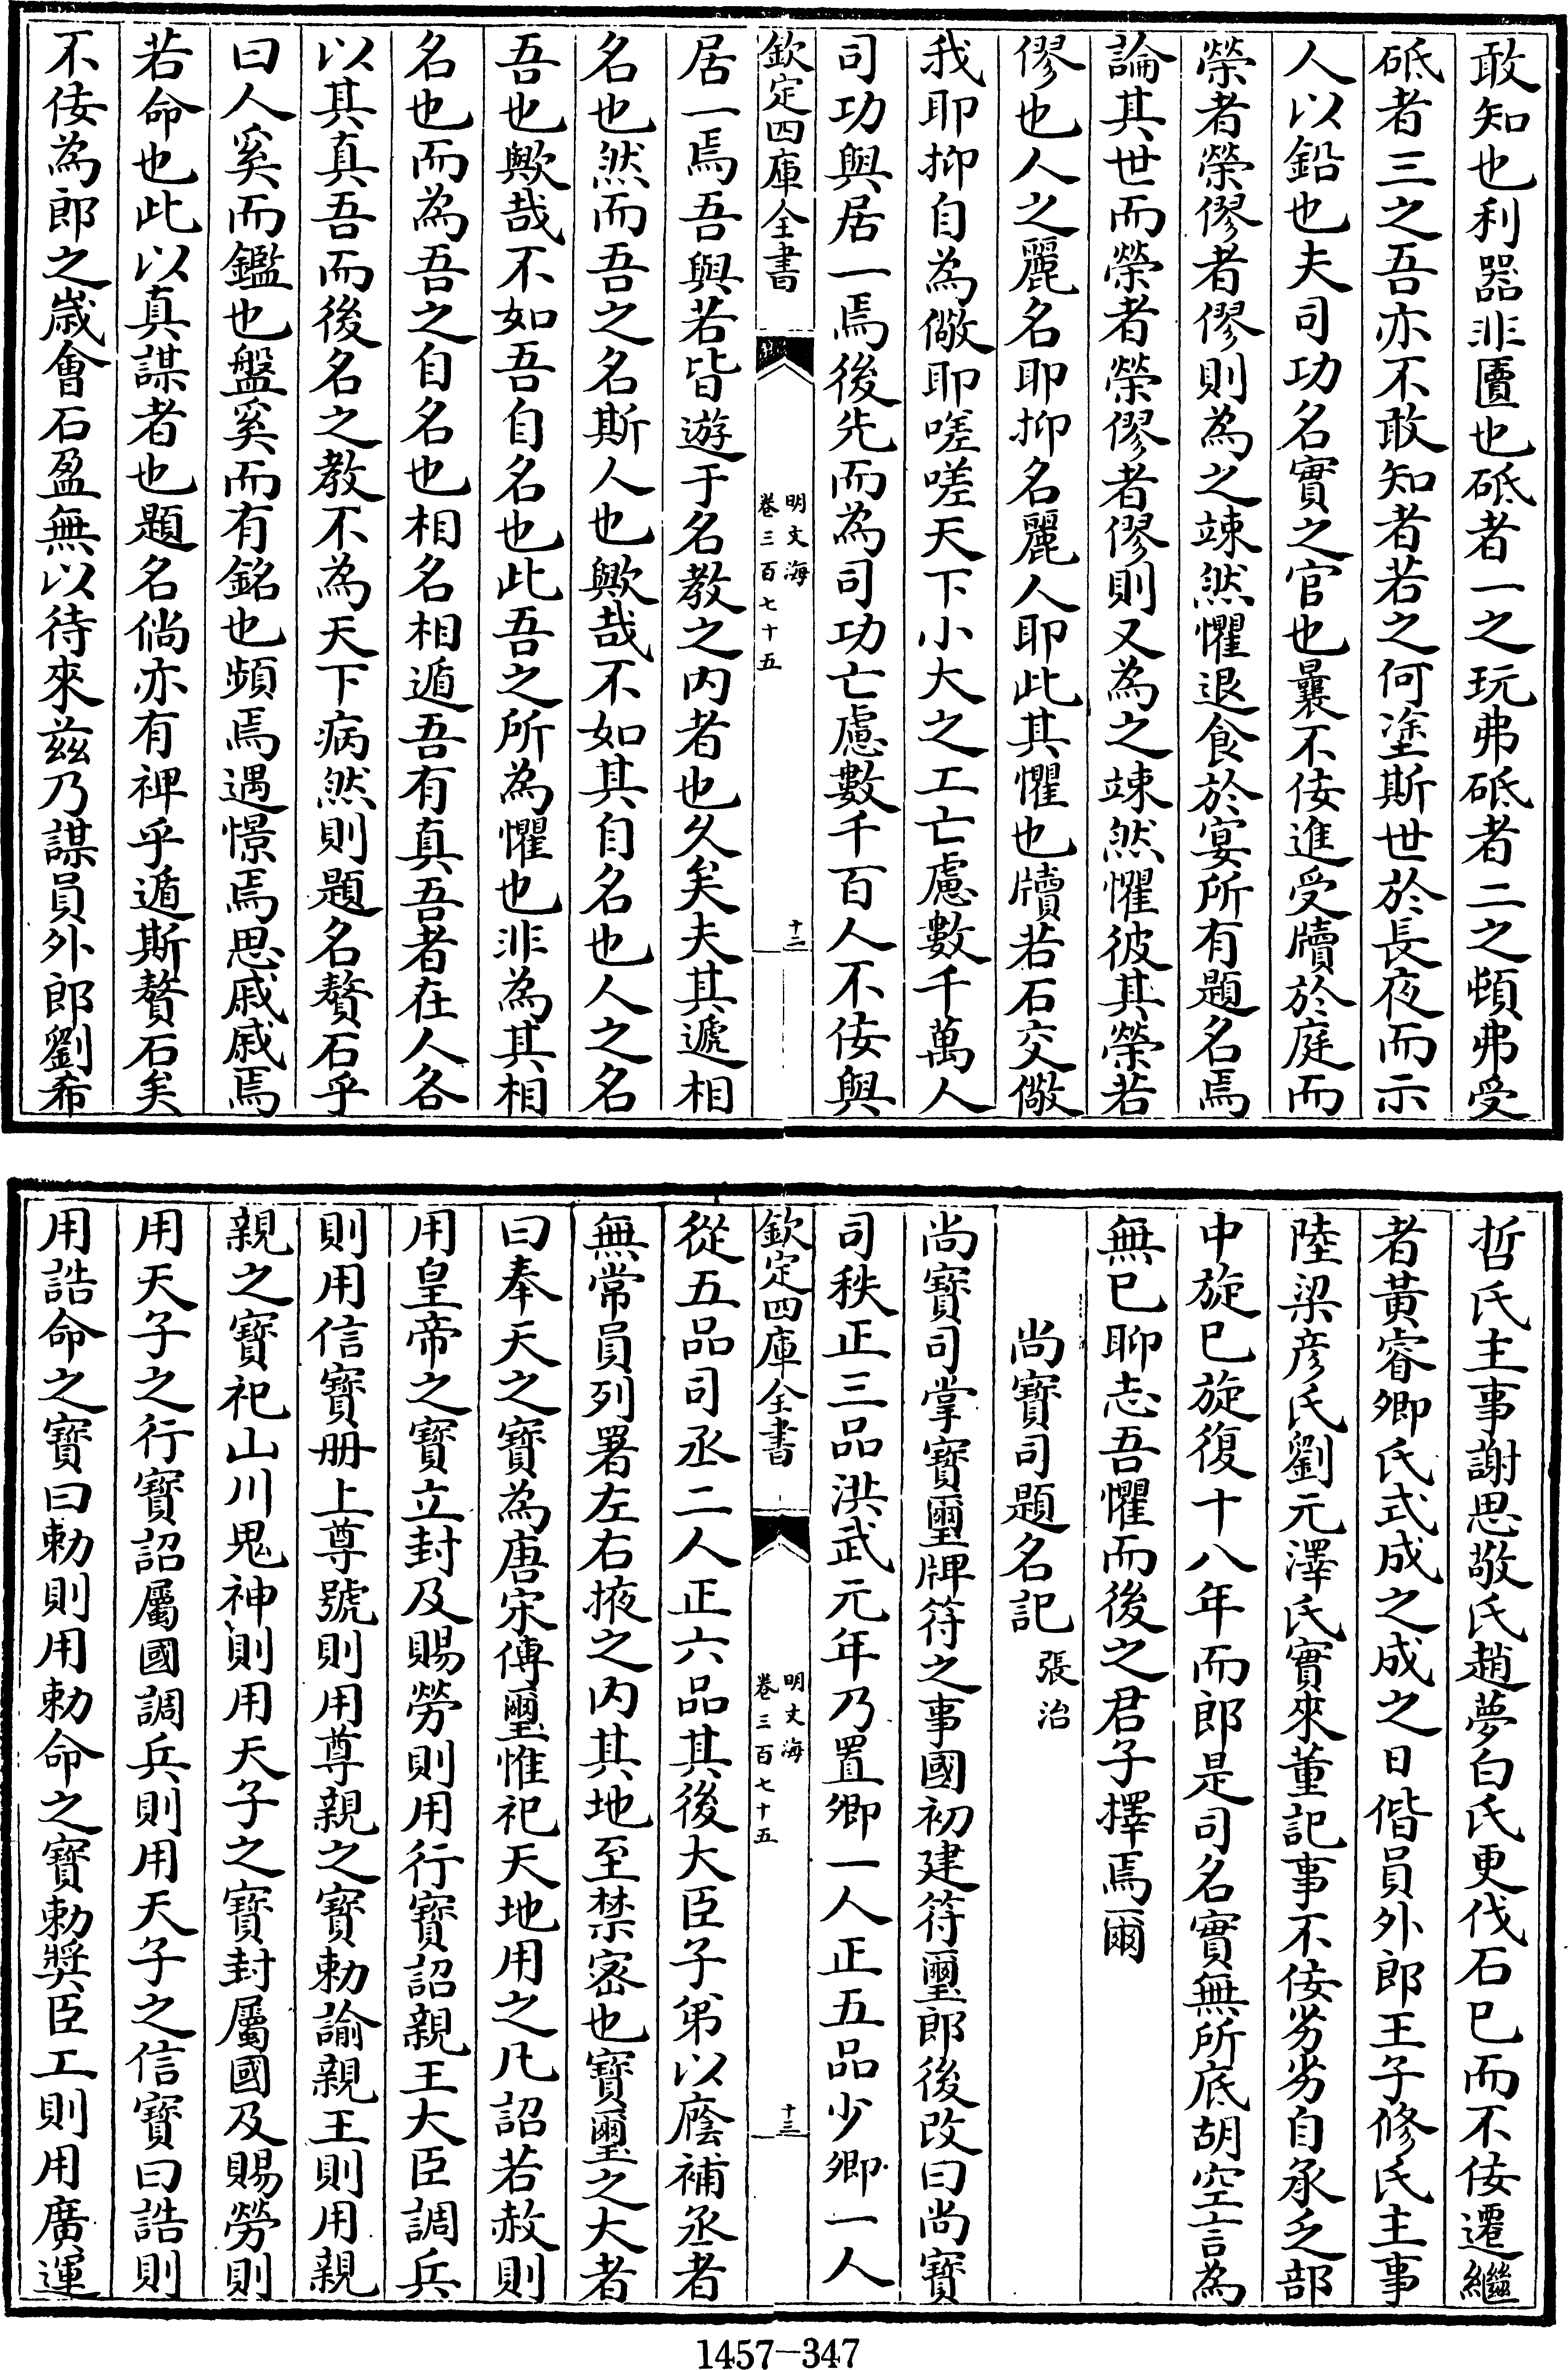 敢知也利器非匵也砥者一之玩弗砥者二之頓弗受
砥者三之吾亦不敢知者若之何塗斯世於長夜而示
人以鉛也夫司功名實之官也曩不佞進受牘於庭而
榮者榮僇者僇則為之竦然懼退食於宴所有題名焉
論其世而榮者榮僇者僇則又為之竦然懼彼其榮若
僇也人之麗名耶抑名麗人耶此其懼也牘若石交儆
我耶抑自為儆耶嗟嗟天下小大之工亡慮數千萬人
司功與居一焉後先而為司功亡慮數千百人不佞與
欽定四庫全書
明文海
卷三百七十五
十二
居一焉吾與若皆遊于名教之内者也久矣夫其遞相
名也然而吾之名斯人也歟哉不如其自名也人之名
吾也歟哉不如吾自名也此吾之所為懼也非為其相
名也而為吾之自名也相名相遁吾有真吾者在人各
以其真吾而後名之教不為天下病然則題名贅石乎
曰人奚而鑑也盤奚而有銘也頻焉遇憬焉思戚戚焉
若命也此以真謀者也題名倘亦有裨乎遁斯贅石矣
不佞為郎之歲會石盈無以待來兹乃謀員外郎劉希
哲氏主事謝思敬氏趙夢白氏更伐石已而不佞遷繼
者黃睿卿氏式成之成之日偕員外郎王子修氏主事
陸梁彥氏劉元澤氏實來董記事不佞劣劣自承乏部
中旋已旋復十八年而郎是司名實無所底胡空言為
無已聊志吾懼而後之君子擇焉爾
尚寶司題名記 張治
尚寶司掌寶璽牌符之事國初建符璽郎後改曰尚寶
司秩正三品洪武元年乃置卿一人正五品少卿一人
欽定四庫全書
明文海
卷三百七十五
十三
從五品司丞二人正六品其後大臣子弟以廕補丞者
無常員列署左右掖之内其地至禁密也寶璽之大者
曰奉天之寶為唐宋傳璽惟祀天地用之凡詔若赦則
用皇帝之寶立封及賜勞則用行寶詔親王大臣調兵
則用信寶冊上尊號則用尊親之寶勅諭親王則用親
親之寶祀山川鬼神則用天子之寶封屬國及賜勞則
用天子之行寶詔屬國調兵則用天子之信寶曰誥則
用誥命之寶曰勅則用勅命之寶勅奬臣工則用廣運
1457-347